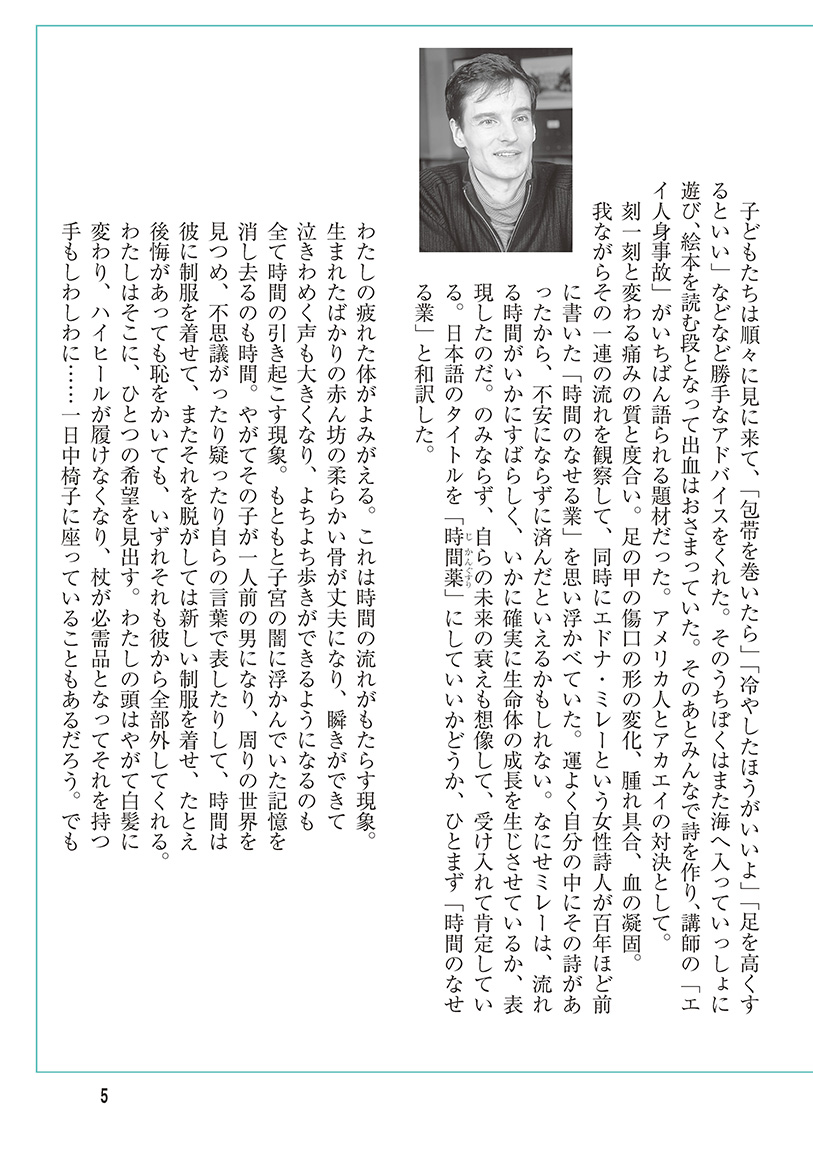 子どもたちは順々に見に来て、「包帯を巻いたら」「冷やしたほうがいいよ」「足を高くす
るといい」などなど勝手なアドバイスをくれた。そのうちぼくはまた海へ入っていっしょに
遊び、絵本を読む段となって出血はおさまっていた。そのあとみんなで詩を作り、講師の「エ
イ人身事故」がいちばん語られる題材だった。アメリカ人とアカエイの対決として。
刻一刻と変わる痛みの質と度合い。足の甲の傷口の形の変化、腫れ具合、血の凝固。
我ながらその一連の流れを観察して、同時にエドナ・ミレーという女性詩人が百年ほど前
に書いた「時間のなせる業」を思い浮かべていた。運よく自分の中にその詩があ
ったから、不安にならずに済んだといえるかもしれない。なにせミレーは、流れ
る時間がいかにすばらしく、いかに確実に生命体の成長を生じさせているか、表
現したのだ。のみならず、自らの未来の衰えも想像して、受け入れて肯定してい
る。日本語のタイトルを「時間薬」にしていいかどうか、ひとまず「時間のなせ
じかんぐすり
る業」と和訳した。
わたしの疲れた体がよみがえる。これは時間の流れがもたらす現象。
生まれたばかりの赤ん坊の柔らかい骨が丈夫になり、瞬きができて
泣きわめく声も大きくなり、よちよち歩きができるようになるのも
全て時間の引き起こす現象。もともと子宮の闇に浮かんでいた記憶を
消し去るのも時間。やがてその子が一人前の男になり、周りの世界を
見つめ、不思議がったり疑ったり自らの言葉で表したりして、時間は
彼に制服を着せて、またそれを脱がしては新しい制服を着せ、たとえ
後悔があっても恥をかいても、いずれそれも彼から全部外してくれる。
わたしはそこに、ひとつの希望を見出す。わたしの頭はやがて白髪に
変わり、ハイヒールが履けなくなり、杖が必需品となってそれを持つ
手もしわしわに……一日中椅子に座っていることもあるだろう。でも
5